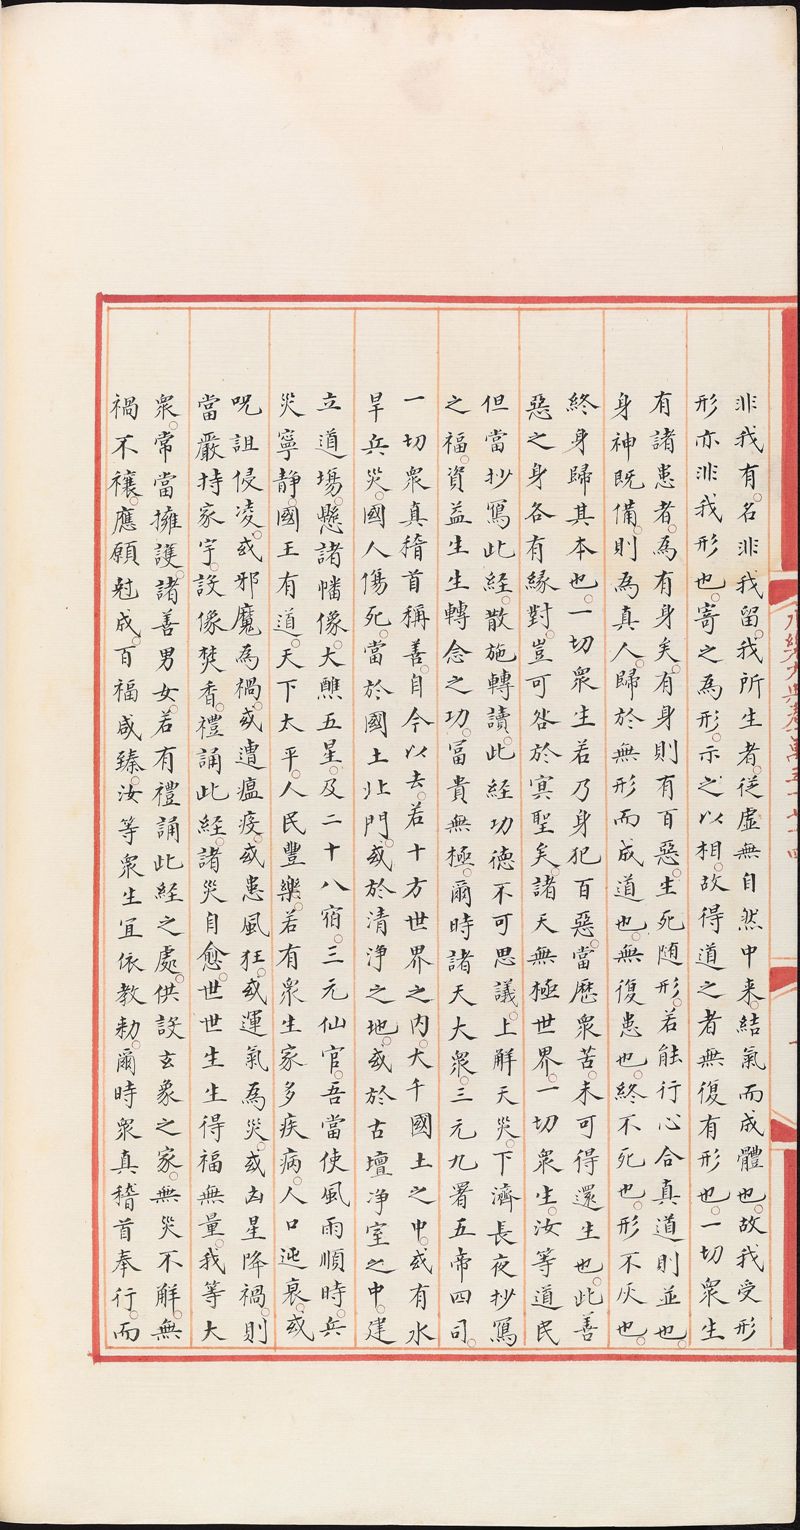 非我有。名非我留。我所生者。從虛無自然中来。結氣而成體也。故我受形
形亦非我形也。寄之為形。示之以相。故得道之者無復有形也。一切衆生
有諸患者。為有身矣。有身則有百惡。生死随形。若能行心合真道則並也。
身神既備。則為真人。歸於無形而成道也。無復患也。終不死也。形不灰也。
終身歸其本也。一切衆生若乃身犯百惡。當歷衆苦。未可得還生也。此善
惡之身各有緣對。豈可咎於冥聖矣。諸天無極世界。一切衆生。汝等道民
但當抄寫此經。散施轉讀。此經功德不可思議。上解天災。下濟長夜抄寫
之福。資益生生轉念之功。冨貴無極。爾時諸天大衆。三元九署五帝四司。
一切衆真稽首稱善。自今以去。若十方世界之内。大千國土之中。或有水
旱兵災。國人傷死。當於國土北門。或於清淨之地。或於古壇净室之中。建
立道場。懸諸幡像。大醮五星。及二十八宿。三元仙官。吾當使風雨順時。兵
災寧静。國王有道。天下太平。人民豐樂。若有衆生家多疾病。人口迍衰。或
呪詛侵凌。或邪魔為禍。或遭瘟疫。或患風狂。或運氣為災。或凶星降禍。則
當嚴持家宇。設像焚香。禮誦此經。諸災自愈。世世生生得福無量。我等大
衆。常當擁護。諸善男女。若有禮誦此經之處。供設玄象之家。無災不解。無
禍不禳。應願尅成。百福咸臻。汝等衆生宜依教勅。爾時衆真稽首奉行。而